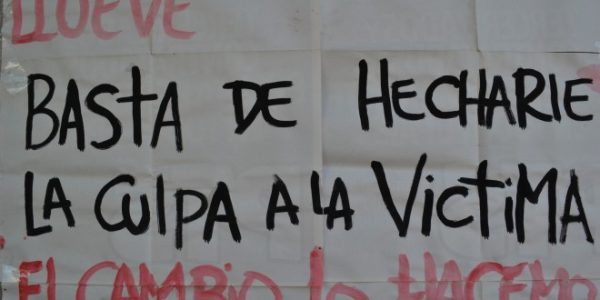 LLUEVE
BASTA DE HECHARIE
LA CULPA A LA VICTIMA
EL CAMBIO lo HACEMO